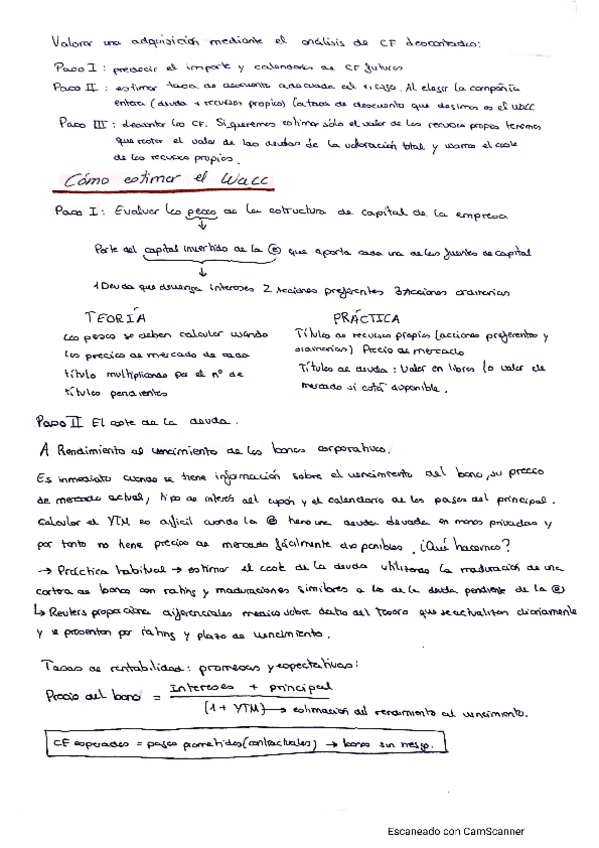 Valorar una adquisición mediante el análisis de CF descontados:
Paso I: predecir el importe y calendario de CF futuros
Paso II: estimar tasa de descuento adecuada al riesgo. Al elegir la compañía
entera (deuda + recursos propios) la tasa de descuento que elegimos es el WACC
Paso III: descontar los CF. Si queremos estimar sólo el valor de los recursos propios tenemos
que restar el valor de las deudas de la valoración total y usamos el coste
de los recursos propios.
Cómo estimar el Wacc
Paso I: Evaluar los pesos de la estructura de capital de la empresa
Parte del capital invertido de la (e) que aporta cada una de las fuentes de capital
1 Deuda que devenga intereses 2 Acciones preferentes 3 Acciones ordinarias
TEORÍA
Los pesos se deben calcular usando
los precios de mercado de cada
título multiplicando por el nº de
títulos pendientes
PRÁCTICA
Títulos de recursos propios (acciones preferentes y
ordinarias) Precio de mercado
Títulos de deuda: Valor en libros (o valor de
mercado si está disponible.
Paso II El coste de la deuda.
A Rendimiento al vencimiento de los bonos corporativos.
Es inmediato cuando se tiene información sobre el vencimiento del bono, su precio
de mercado actual, tipo de interés del cupón y el calendario de los pagos del principal.
Calcular el YTM es difícil cuando la (e) tiene una deuda elevada en manos privadas y
por tanto no tiene precios de mercado fácilmente disponibles. ¿Qué hacemos?
→ Práctica habitual → estimar el coste de la deuda utilizando la maduración de una
cartera de bonos con rating y maduraciones similares a los de la deuda pendiente de la (e)
↳ Reuters proporciona diferenciales medios sobre del Tesoro que se actualizan diariamente
y se presentan por rating y plazo de vencimiento.
Tasas de rentabilidad: promesas y expectativas:
Precio del bono = Intereses + principal
(1 + YTM) → estimación del rendimiento al vencimiento.
CF esperados = pagos prometidos (contractuales) → bonos sin riesgo.
Escaneado con CamScanner